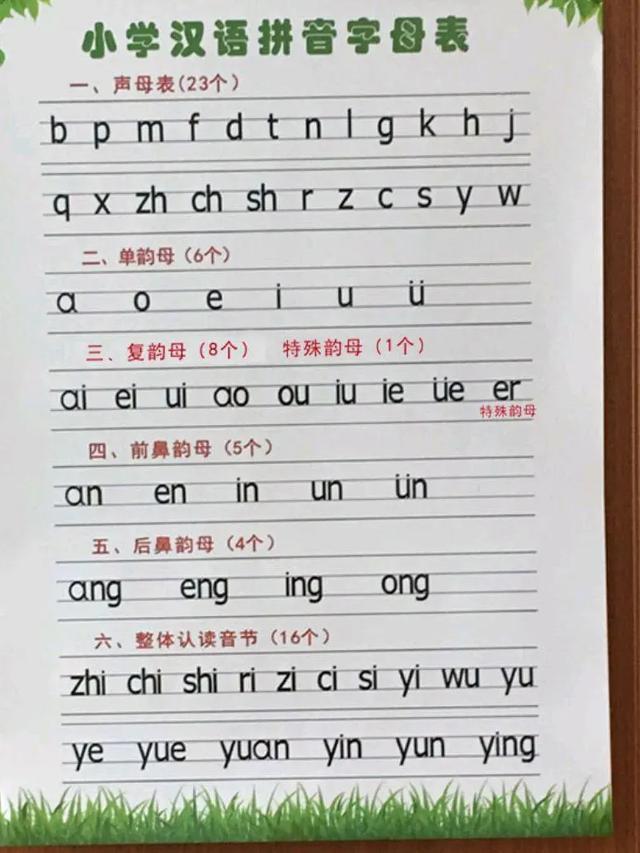 小学汉语拼音字母表
一、声母表(23个)
b p m f d t n l g k h j
q x zh ch sh r z c s y w
二、单韵母(6个)
a o e i u ü
三、复韵母(8个) 特殊韵母(1个)
ai ei ui ao ou iu ie üe er
特殊韵母
四、前鼻韵母(5个)
an en in un ün
五、后鼻韵母(4个)
ang eng ing ong
六、整体认读音节(16个)
zhi chi shi ri zi ci si yi wu yu
ye yue yuan yin yun ying